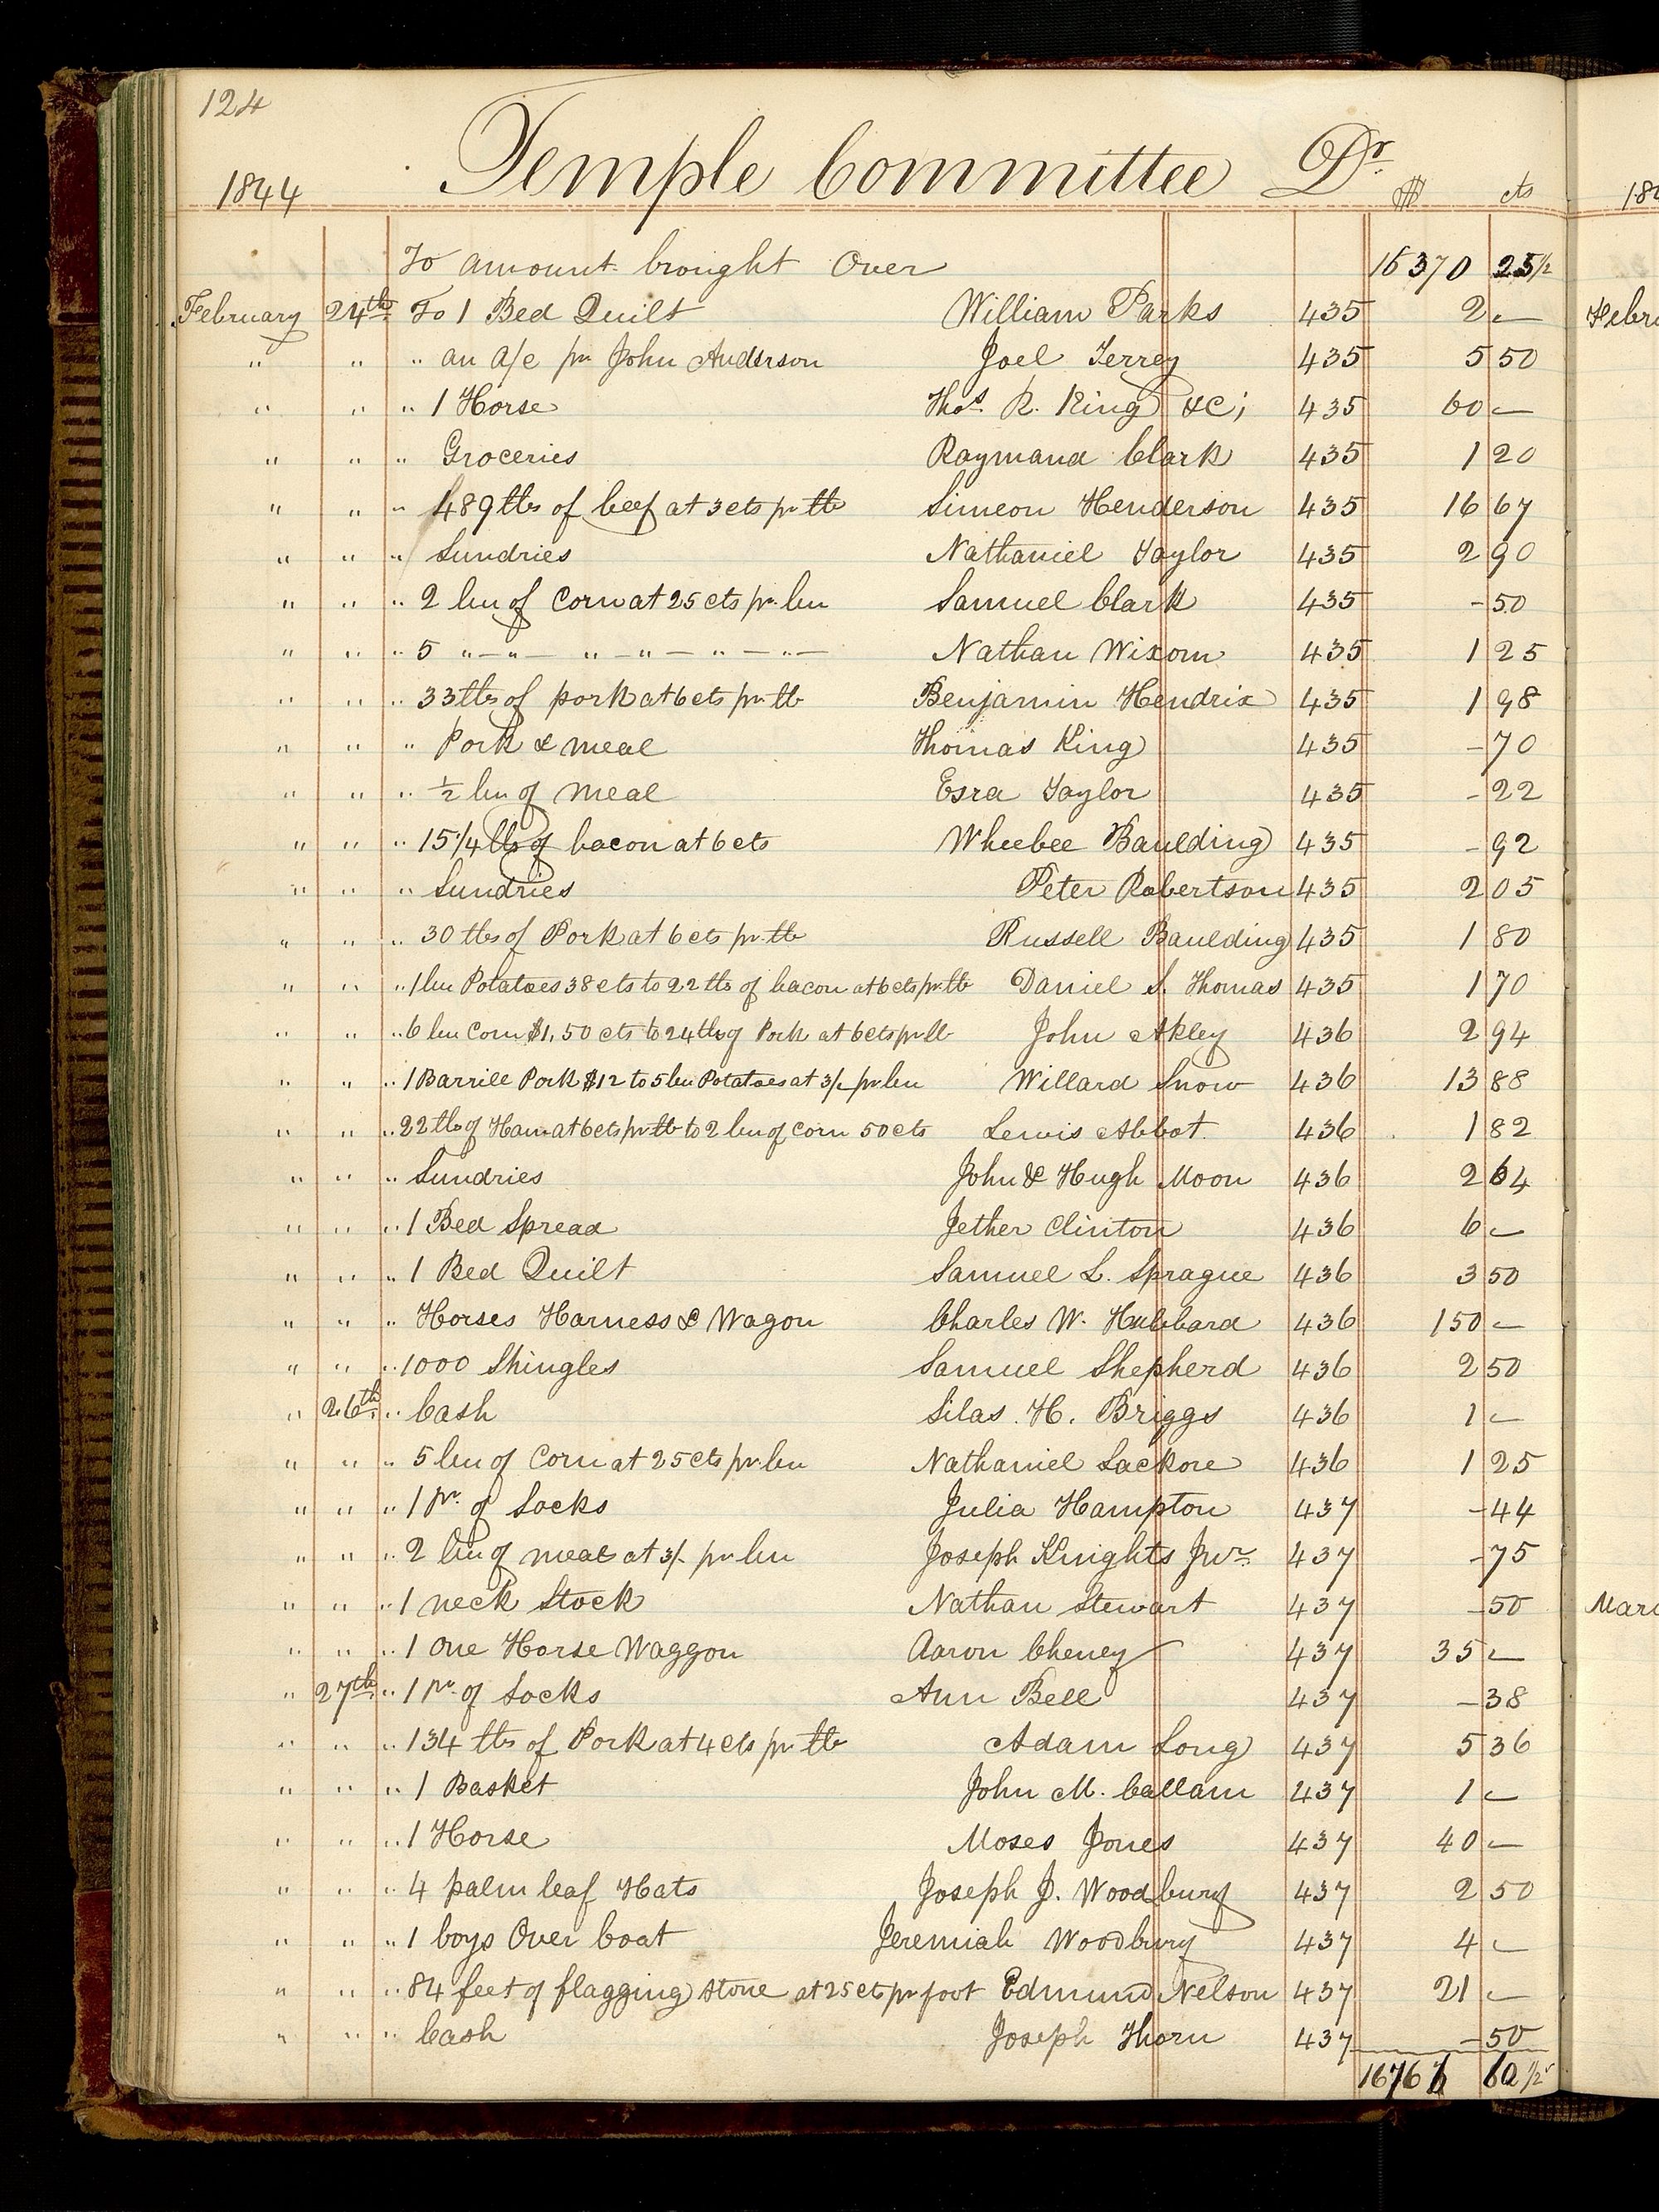 124
1844 Temple Committee Dr. $ cts
To amount brought Over 16370 25 1/2
February 24th To 1 Bed Quilt William Parks 435 2 —
" " " an a/c pr John Anderson Joel Terrey 435 5 50
" " " 1 Horse Thos. R. King &C; 435 60 —
" " " Groceries Raymand Clark 435 1 20
" " " 489 lbs of beef at 3 cts pr lb Simeon Henderson 435 16 67
" " " Sundries Nathaniel Taylor 435 2 90
" " " 2 bu of Corn at 25 cts pr. bu Samuel Clark 435 - 50
" " " 5 " — " — " — " — " — " — Nathan Wixom 435 1 25
" " " 33 lbs of pork at 6 cts pr. lb Benjamin Hendrix 435 1 98
" " " Pork & meal Thomas King 435 - 70
" " " 1/2 bu of meal Esra Taylor 435 - 22
" " " 15 1/4 lbs of bacon at 6 cts Wheebee Baulding 435 - 92
" " " Sundries Peter Robertson 435 2 05
" " " 30 lbs of Pork at 6 cts pr. lb Russell Baulding 435 1 80
" " " 1 bu Potatoes 38 cts to 22 lbs of bacon at 6 cts pr. lb Daniel S. Thomas 435 1 70
" " " 6 bu Corn $1,50 cts to 24 lbs of Pork at 6 cts pr lb John Akley 436 2 94
" " " 1 Barrell Pork $12 to 5 bu Potatoes at 3/- pr bu Willard Snow 436 13 88
" " " 22 lb of Ham at 6 cts pr lb to 2 bu of Corn 50 cts Lewis Abbot 436 1 82
" " " Sundries John & Hugh Moon 436 2 64
" " " 1 Bed Spread Jether Clinton 436 6 —
" " " 1 Bed Quilt Samuel L. Sprague 436 3 50
" " " Horses Harness & Wagon Charles W. Hubbard 436 150 —
" " " 1000 Shingles Samuel Shepherd 436 2 50
" 26th " Cash Silas H. Briggs 436 1 —
" " " 5 bu of Corn at 25 cts pr. bu Nathaniel Lackore 436 1 25
" " " 1 Pr. of Socks Julia Hampton 437 - 44
" " " 2 bu of meal at 3/- pr bu Joseph Knights Jur. 437 - 75
" " " 1 neck Stock Nathan Stewart 437 - 50
" " " 1 One Horse Waggon Aaron Cheney 437 35 —
" 27th " 1 Pr. of Socks Ann Bell 437 - 38
" " " 134 lbs of Pork at 4 cts pr lb Adam Long 437 5 36
" " " 1 Basket John M. Callam 437 1 —
" " " 1 Horse Moses Jones 437 40 —
" " " 4 palm leaf Hats Joseph J. Woodbury 437 2 50
" " " 1 boys Over Coat Jeremiah Woodbury 437 4 —
" " " 84 feet of flagging stone at 25 cts pr foot Edmund Nelson 437 21 —
" " " Cash Joseph Thorn 437 - 50